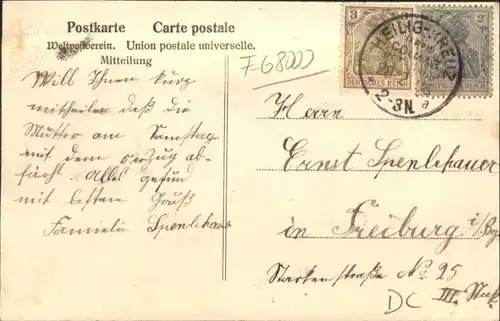 Postkarte Carte postale
Weltpostverein. Union postale universelle.
Mitteilung
F68000
Will Ihnen kurz
mitheilen daß die
Mutter am Samstag
mit dem Zug ab-
fährt Alles gesund
mit besten Gruß
Familie Spenlehauer
3
DEUTSCHES REICH
2
DEUTSCHES REICH
HEILIG-KREUZ
2-3N.
a
Herrn
Ernst Spenlehauer
in Freiburg i/Bg
Starkenstraße No 25
III. Stock
DC